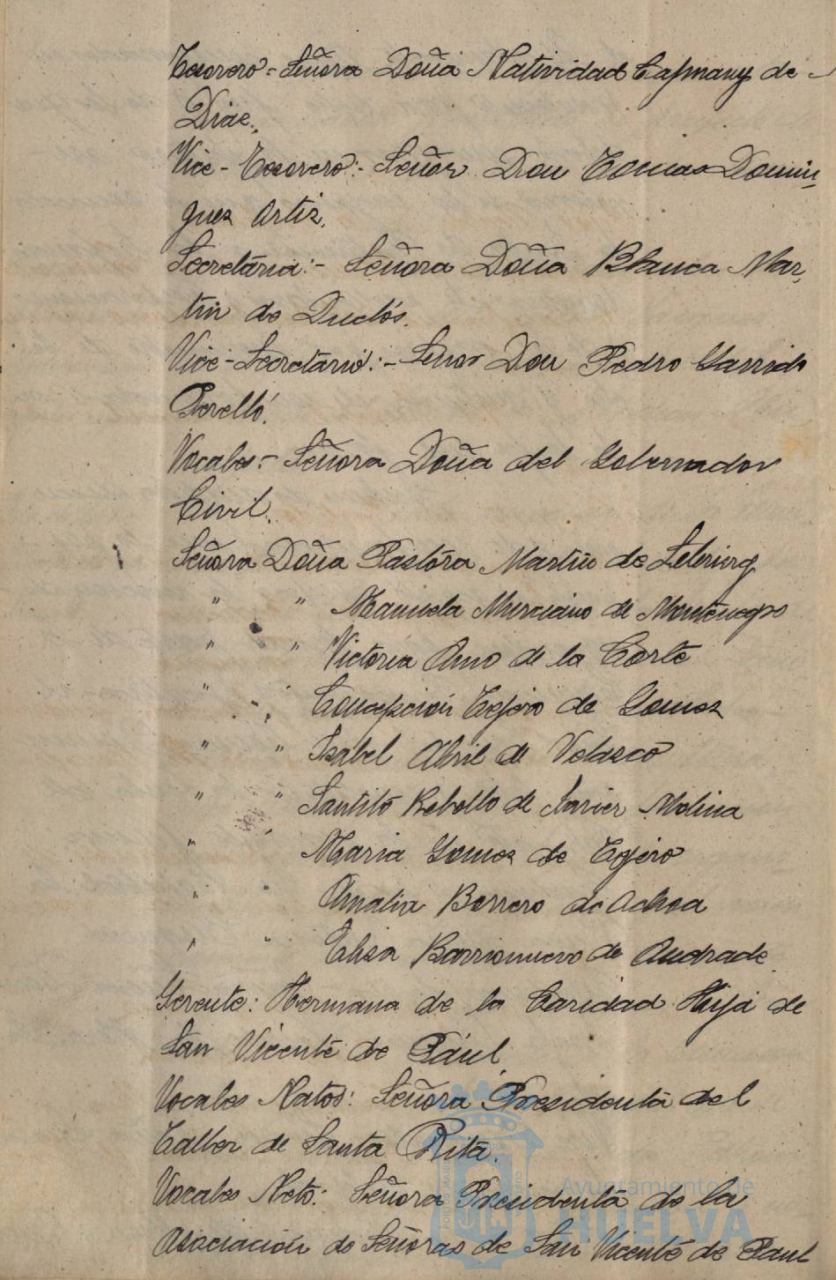 Tesorero- Señora Doña Natividad Capmany de-
Diae.,
Vice-Tesorero:- Señor Don Tomas Domin-
guez Ortiz.
Secretaria:- Señora Doña Blanca Mar-
tin de Duclós.
Vice-Secretario:- Señor Don Pedro Garrido
Perelló.
Vocales:- Señora Doña del Gobernador
Civil.
Señora Doña Pastora Martin de
" " Manuela Murciano de Montenegro
" " Victoria Amo de la Corte
" " Concepción Tejero de Gomez
" " Isabel Abril de Velasco
" " Santitó Rebollo de Xavier Molina
" " Maria Gomez de Tejero
" " Amalia Borrero de Achoa
" " Elisa Barrionuevo de Andrade
Gerente: Hermana de la Caridad Hija de
San Vicente de Pául.
Vocales Natos: Señora Presidenta del
Taller de Santa Rita.
Vocales Neto: Señora Presidenta de la
Asociación de Señoras de San Vicente de Paul
Ayuntamiento de
HUELVA